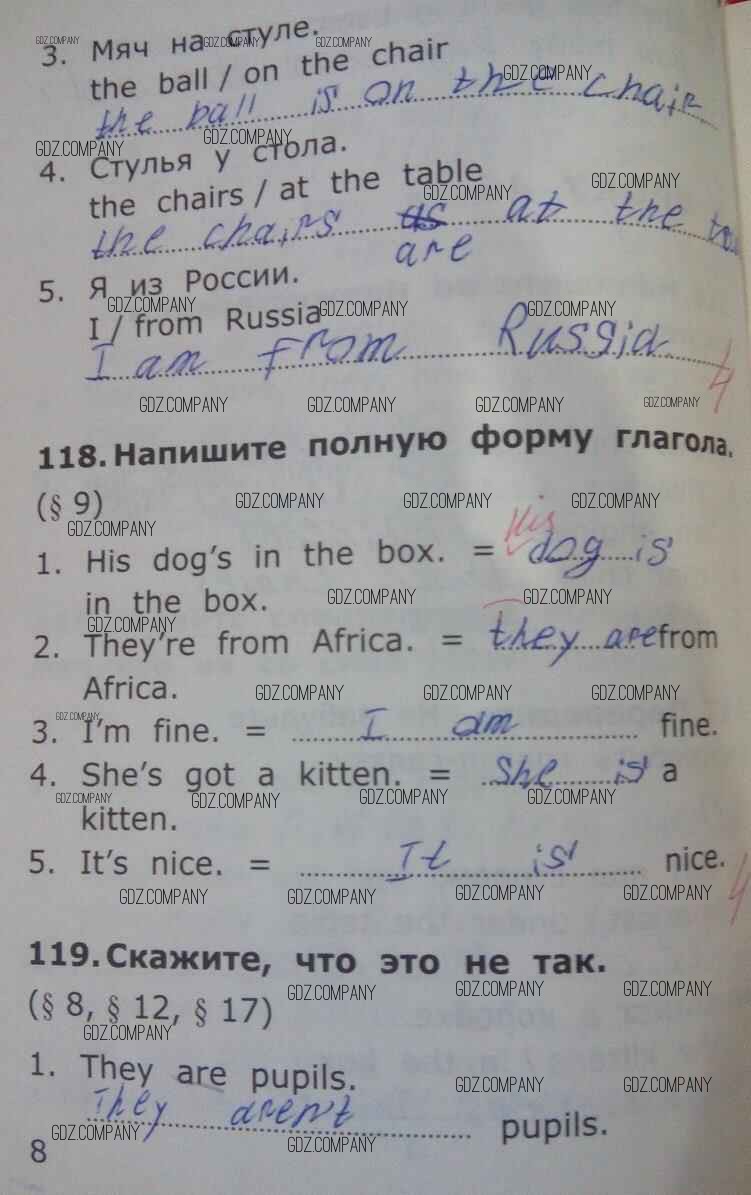 3. Мяч на стуле.
the ball / on the chair
the ball is on the chair
4. Стулья у стола.
the chairs / at the table
the chairs at the
are
5. Я из России.
I / from Russia
I am from Russia
4
118. Напишите полную форму глагола.
(§ 9)
His
1. His dog's in the box. = dog is
in the box.
2. They're from Africa. = they are from
Africa.
3. I'm fine. = I am fine.
4. She's got a kitten. = she is a
kitten.
5. It's nice. = It is nice.
4
119. Скажите, что это не так.
(§ 8, § 12, § 17)
1. They are pupils.
They aren't pupils.
8
GDZ.COMPANY